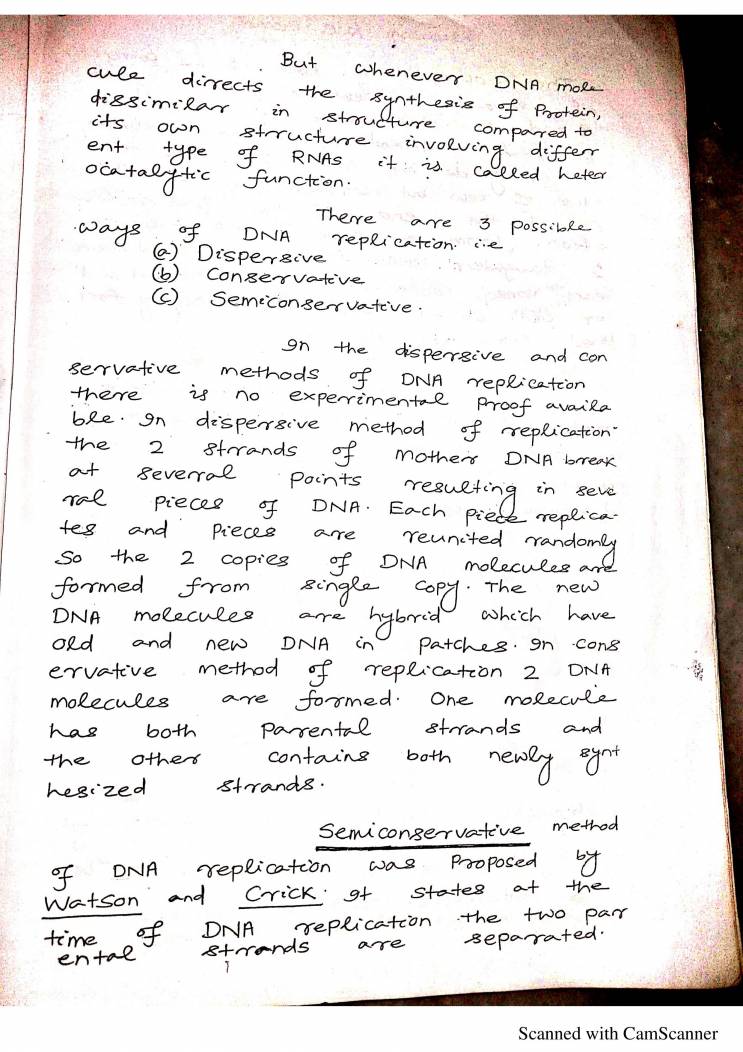 But whenever DNA mole
cule directs the synthesis of Protein,
dissimilar in structure compared to
its own structure involving differ
ent type of RNAs it is called heter
ocatalytic function.
There are 3 possible
ways of DNA replication i.e
(a) Dispersive
(b) Conservative
(c) Semiconservative.
In the dispersive and con
servative methods of DNA replication
there is no experimental Proof availa
ble. In dispersive method of replication
the 2 strands of mother DNA break
at several points resulting in seve
ral pieces of DNA. Each piece replica-
tes and pieces are reunited randomly
So the 2 copies of DNA molecules are
formed from single copy. The new
DNA molecules are hybrid which have
old and new DNA in patches. In cons
ervative method of replication 2 DNA
molecules are formed. One molecule
has both parental strands and
the other contains both newly synt
hesized strands.
Semiconservative method
of DNA replication was Proposed by
Watson and Crick. It states at the
time of DNA replication the two par
ental strands are separated.
Scanned with CamScanner